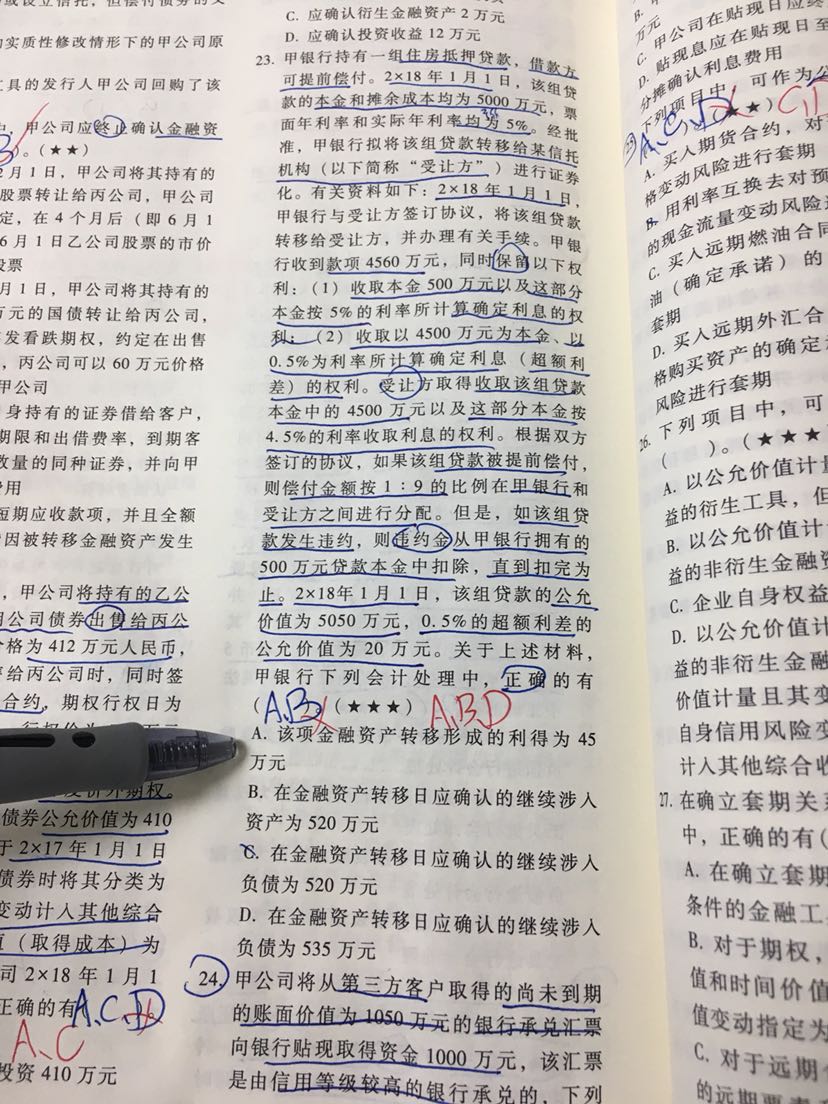 或设立信托，但偿付债务的义
的实质性修改情形下的甲公司原
工具的发行人甲公司回购了该
甲公司应终止确认金融资
。（★★）
2月1日，甲公司将其持有的
股票转让给丙公司，甲公司
定，在4个月后（即6月1
6月1日乙公司股票的市价
股票
月1日，甲公司将其持有的
万元的国债转让给丙公司，
发看跌期权，约定在出售
，丙公司可以60万元价格
甲公司
身持有的证券借给客户，
期限和出借费率，到期客
数量的同种证券，并向甲
费用
短期应收款项，并且全额
因被转移金融资产发生
，甲公司将持有的乙公
期公司债券出售给丙公
价格为412万元人民币，
售给丙公司时，同时签
合约，期权行权日为
价外期权。
债券公允价值为410
于2×17年1月1日
债券时将其分类为
变动计入其他综合
值（取得成本）为
司2×18年1月1
正确的有 A、C、D
A、C
投资410万元
C. 应确认衍生金融资产2万元
D. 应确认投资收益12万元
23. 甲银行持有一组住房抵押贷款，借款方
可提前偿付。2×18年1月1日，该组贷
款的本金和摊余成本均为5000万元，票
面年利率和实际年利率均为5%。经批
准，甲银行拟将该组贷款转移给某信托
机构（以下简称“受让方”）进行证券
化。有关资料如下：2×18年1月1日，
甲银行与受让方签订协议，将该组贷款
转移给受让方，并办理有关手续。甲银
行收到款项4560万元，同时保留以下权
利：（1）收取本金500万元以及这部分
本金按5%的利率所计算确定利息的权
利；（2）收取以4500万元为本金、以
0.5%为利率所计算确定利息（超额利
差）的权利。受让方取得收取该组贷款
本金中的4500万元以及这部分本金按
4.5%的利率收取利息的权利。根据双方
签订的协议，如果该组贷款被提前偿付，
则偿付金额按1：9的比例在甲银行和
受让方之间进行分配。但是，如该组贷
款发生违约，则违约金从甲银行拥有的
500万元贷款本金中扣除，直到扣完为
止。2×18年1月1日，该组贷款的公允
价值为5050万元，0.5%的超额利差的
公允价值为20万元。关于上述材料，
甲银行下列会计处理中，正确的有
（A、B）。（★★★） A、B、D
A. 该项金融资产转移形成的利得为45
万元
B. 在金融资产转移日应确认的继续涉入
资产为520万元
C. 在金融资产转移日应确认的继续涉入
负债为520万元
D. 在金融资产转移日应确认的继续涉入
负债为535万元
24. 甲公司将从第三方客户取得的尚未到期
的账面价值为1050万元的银行承兑汇票
向银行贴现取得资金1000万元，该汇票
是由信用等级较高的银行承兑的，下列
万元
C. 甲公司在贴现日应终
D. 贴现息应在贴现日至
分摊确认利息费用
下列项目中，可作为公
A、C、D （★★） C、D
A. 买入期货合约，对
格变动风险进行套期
B. 用利率互换去对预
的现金流量变动风险
C. 买入远期燃油合同
油（确定承诺）的
套期
D. 买入远期外汇合
格购买资产的确定
风险进行套期
26. 下列项目中，可
（ ）。（★★★
A. 以公允价值计
益的衍生工具，但
B. 以公允价值计
益的非衍生金融资
C. 企业自身权益
D. 以公允价值计
益的非衍生金融
价值计量且其变
自身信用风险变
计入其他综合收
27. 在确立套期关系
中，正确的有（
A. 在确立套期
条件的金融工
B. 对于期权，
值和时间价值
值变动指定为
C. 对于远期
的远期要素